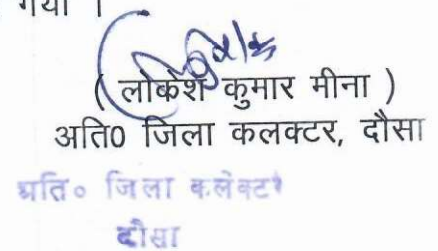 गया ।
( लोकेश कुमार मीना )
अति0 जिला कलक्टर, दौसा
अति० जिला कलेक्टर
दौसा